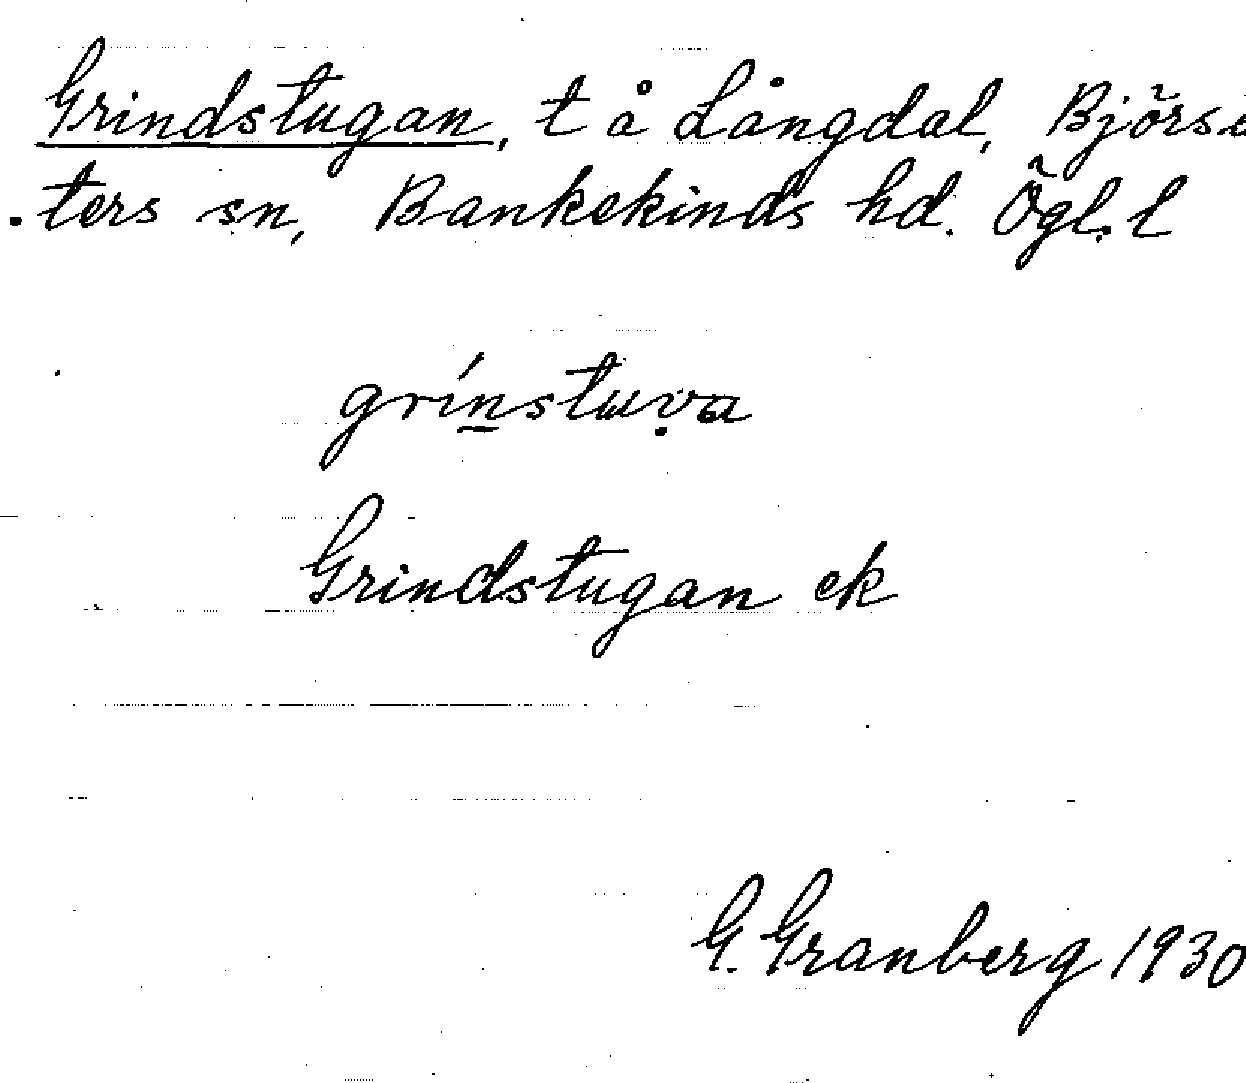 Grindstugan, t å Långdal, Björsä
ters sn, Bankekinds hd. Ögl. l
grínstuva
Grindstugan ek
G. Granberg 1930